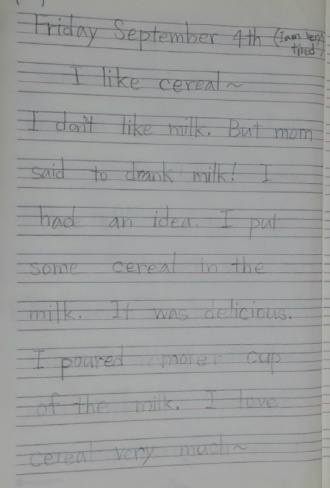 Friday September 4th (I am very
tired)
I like cereal~
I don't like milk. But mom
said to drank milk! I
had an idea. I put
some cereal in the
milk. It was delicious.
I poured more cup
of the milk. I love
cereal very much~